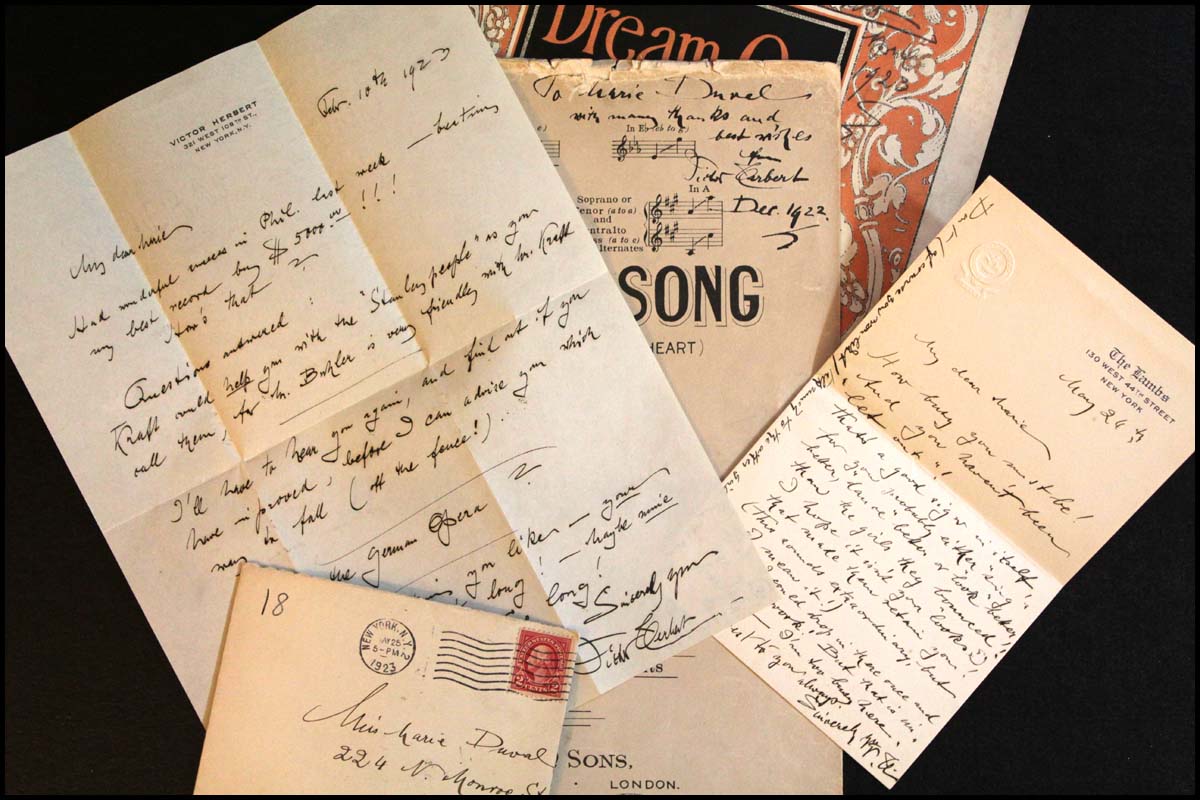 Dream
1923
To Marie Duval
with many thanks and
best wishes
from
Victor Herbert
Dec. 1922.
In E♭ (b♭ to g)
In A
Soprano or
Tenor (a to a)
and
SONG
HEART)
SONS,
LONDON.
VICTOR HERBERT
321 WEST 108TH ST.,
NEW YORK, N.Y.
Febr. 10th 1923
My dear Marie
Had wonderful success in Phil. last week — beating
my best record by $ 5000.00 !!!
How's that ?
Questions answered :
Kraft could help you with the "Stanley people" as you
call them, for Mr. is very friendly with Mr. Kraft
I'll have to hear you again, and find out if you
have improved, before I can advise you which
way to fall (off the fence!).
The German Opera ?
as you like — your
long! — maybe mine
long!
Sincerely your
Victor Herbert
18
NEW YORK, N.Y.
MAY 25
5-PM
1923
2 CENTS 2
Miss Marie Duval
224 N. Monroe St
The Lambs
130 WEST 44TH STREET
NEW YORK
May 24th
My dear Marie
How busy you must be!
And you haven't been
"left out"!
That's a good sign in itself,
for you probably either "sing"
better, dance better or look better,
than the girls they bounced!
I hope it isn't your looks(?)
that made them retain you!
(This sounds extraordinary, but
I mean it!)
I could drop in there once and
— But that is in
work — I'm too busy here.
to you always
Sincerely your